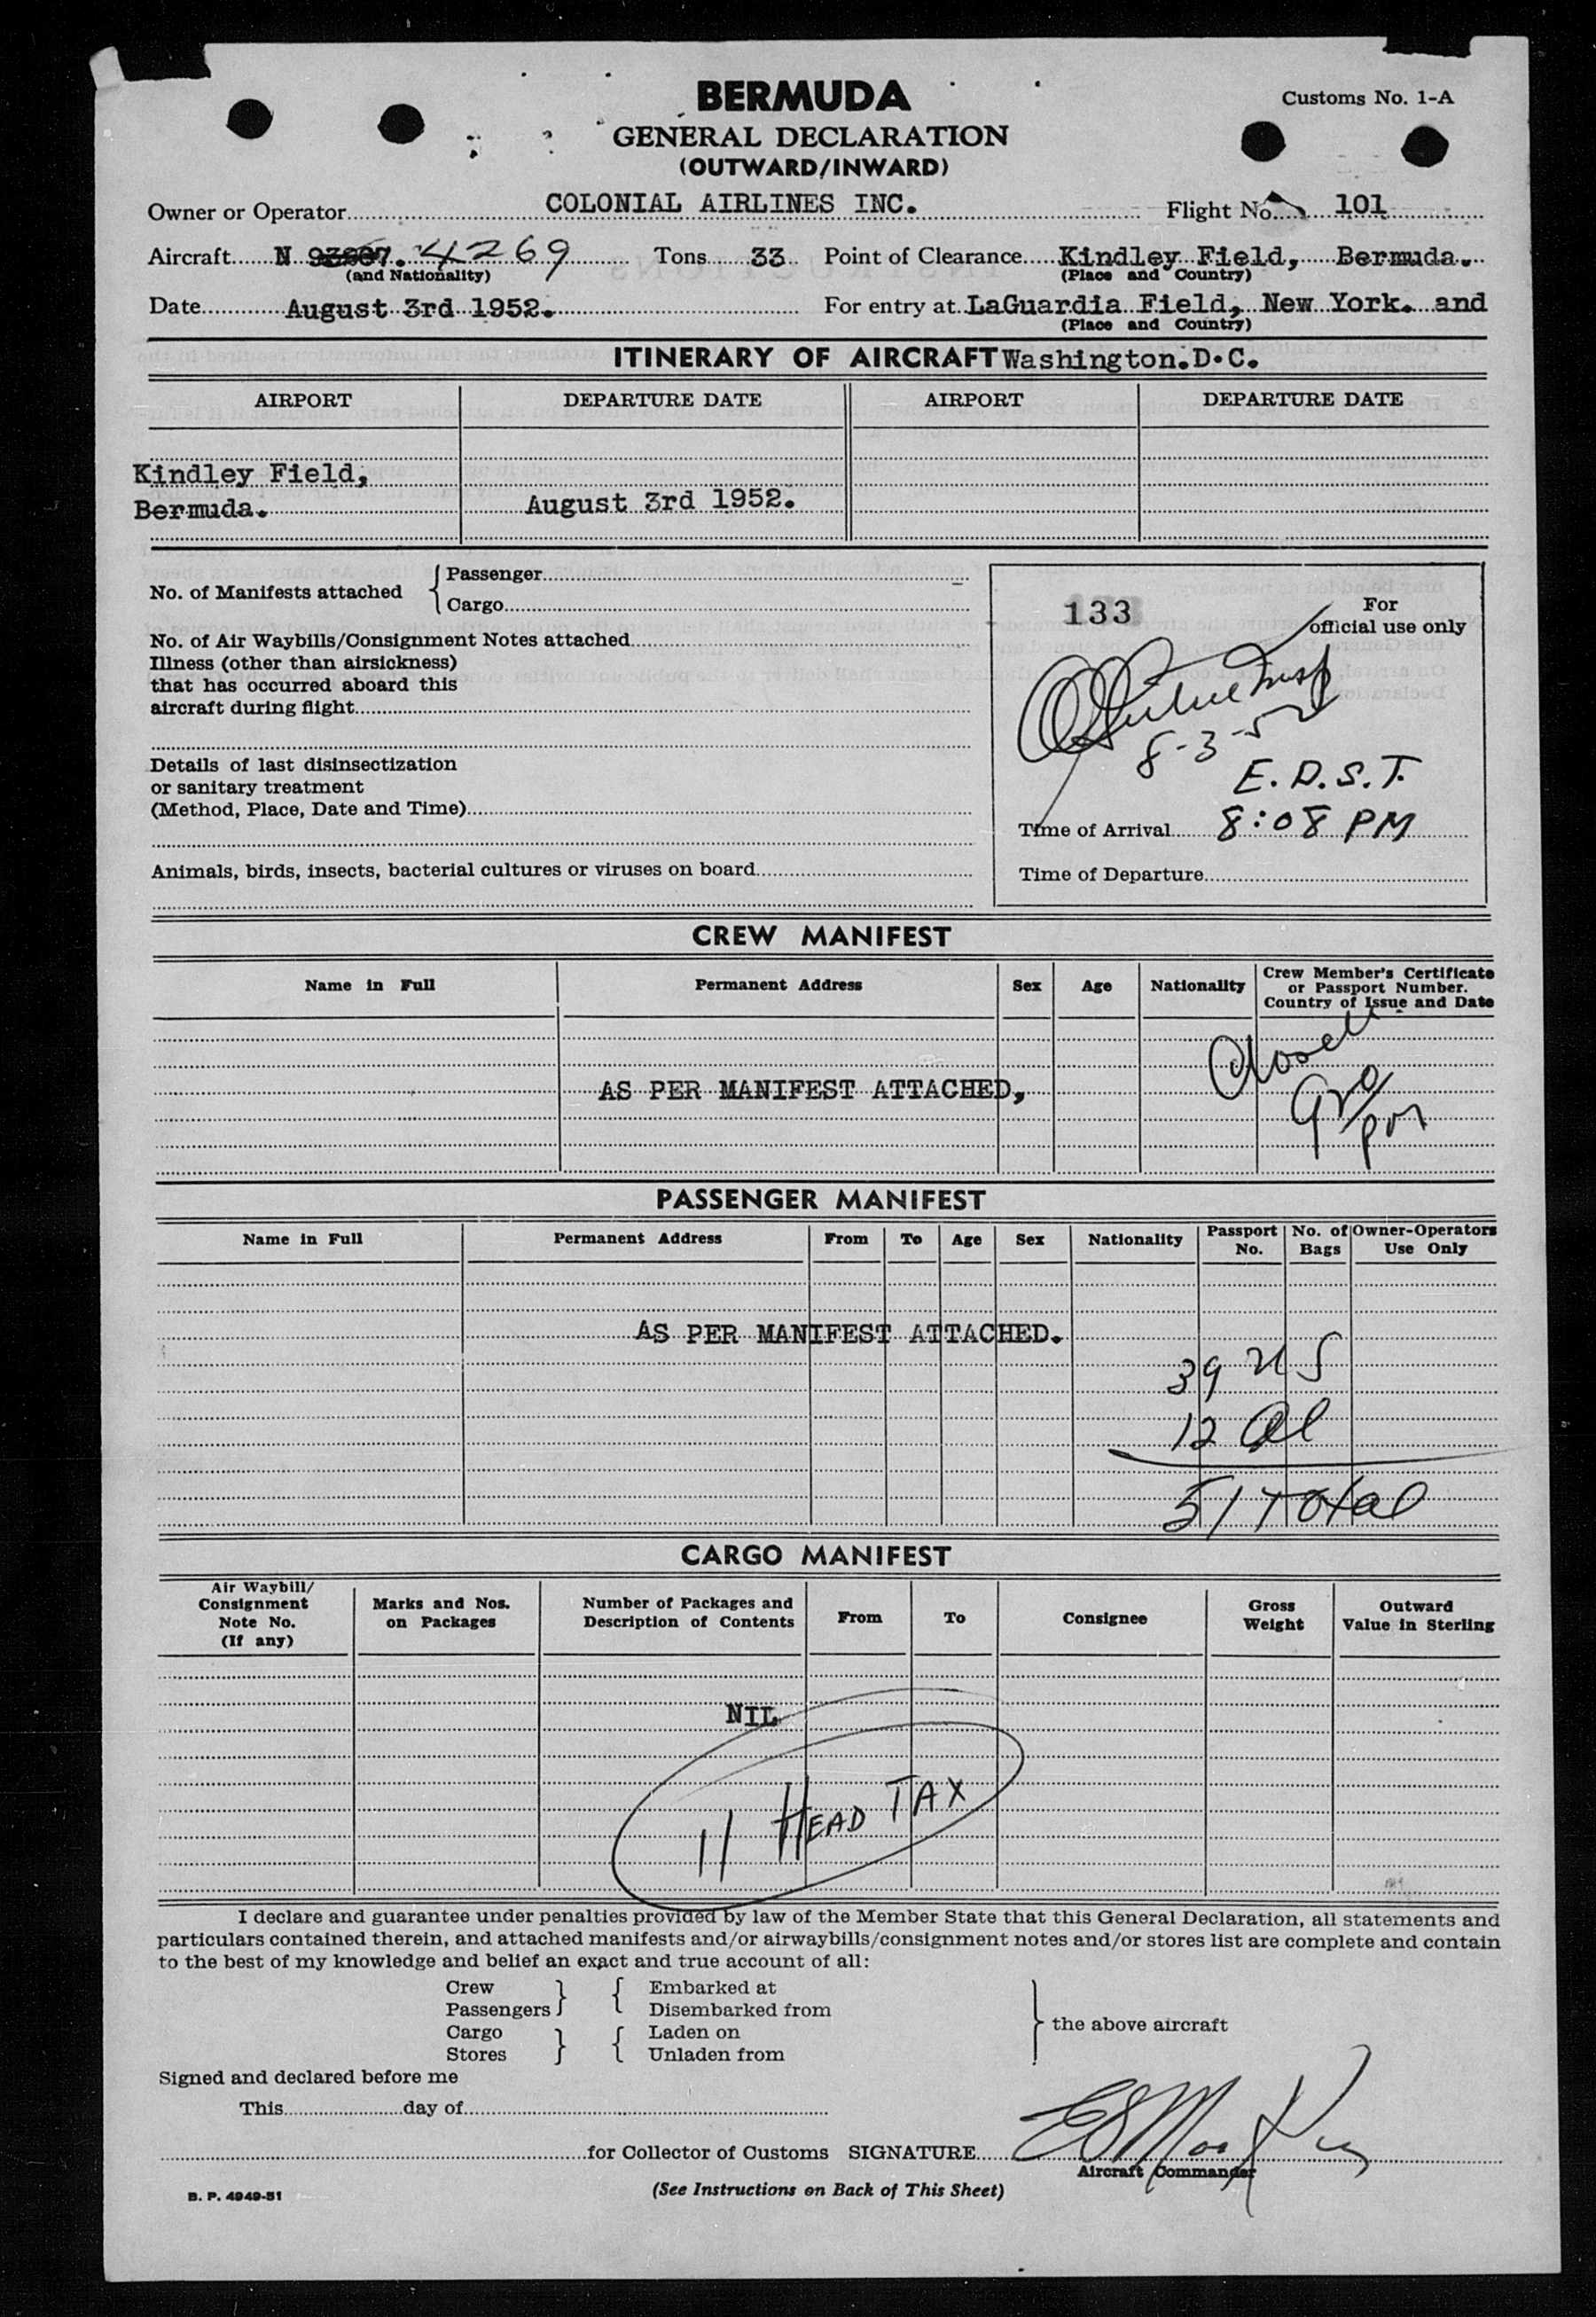 BERMUDA
Customs No. 1-A
GENERAL DECLARATION
(OUTWARD/INWARD)
Owner or Operator COLONIAL AIRLINES INC. Flight No. 101
Aircraft N 4269 Tons 33 Point of Clearance Kindley Field, Bermuda.
(and Nationality) (Place and Country)
Date August 3rd 1952. For entry at LaGuardia Field, New York. and
(Place and Country)
ITINERARY OF AIRCRAFT Washington.D.C.
AIRPORT DEPARTURE DATE AIRPORT DEPARTURE DATE
Kindley Field,
Bermuda. August 3rd 1952.
No. of Manifests attached { Passenger
Cargo
No. of Air Waybills/Consignment Notes attached
Illness (other than airsickness)
that has occurred aboard this
aircraft during flight
Details of last disinsectization
or sanitary treatment
(Method, Place, Date and Time)
Animals, birds, insects, bacterial cultures or viruses on board
133 For
official use only
8-3-52
E.D.S.T.
Time of Arrival 8:08 PM
Time of Departure
CREW MANIFEST
Name in Full Permanent Address Sex Age Nationality Crew Member's Certificate
or Passport Number.
Country of Issue and Date
AS PER MANIFEST ATTACHED,
PASSENGER MANIFEST
Name in Full Permanent Address From To Age Sex Nationality Passport No. No. of Bags Owner-Operators Use Only
AS PER MANIFEST ATTACHED.
39 US
12 Al
51 Total
CARGO MANIFEST
Air Waybill/ Consignment Note No. (If any) Marks and Nos. on Packages Number of Packages and Description of Contents From To Consignee Gross Weight Outward Value in Sterling
NIL
11 HEAD TAX
I declare and guarantee under penalties provided by law of the Member State that this General Declaration, all statements and
particulars contained therein, and attached manifests and/or airwaybills/consignment notes and/or stores list are complete and contain
to the best of my knowledge and belief an exact and true account of all:
Crew } { Embarked at
Passengers Disembarked from
Cargo } { Laden on } the above aircraft
Stores Unladen from
Signed and declared before me
This day of
for Collector of Customs SIGNATURE
Aircraft Commander
B. P. 4949-51
(See Instructions on Back of This Sheet)